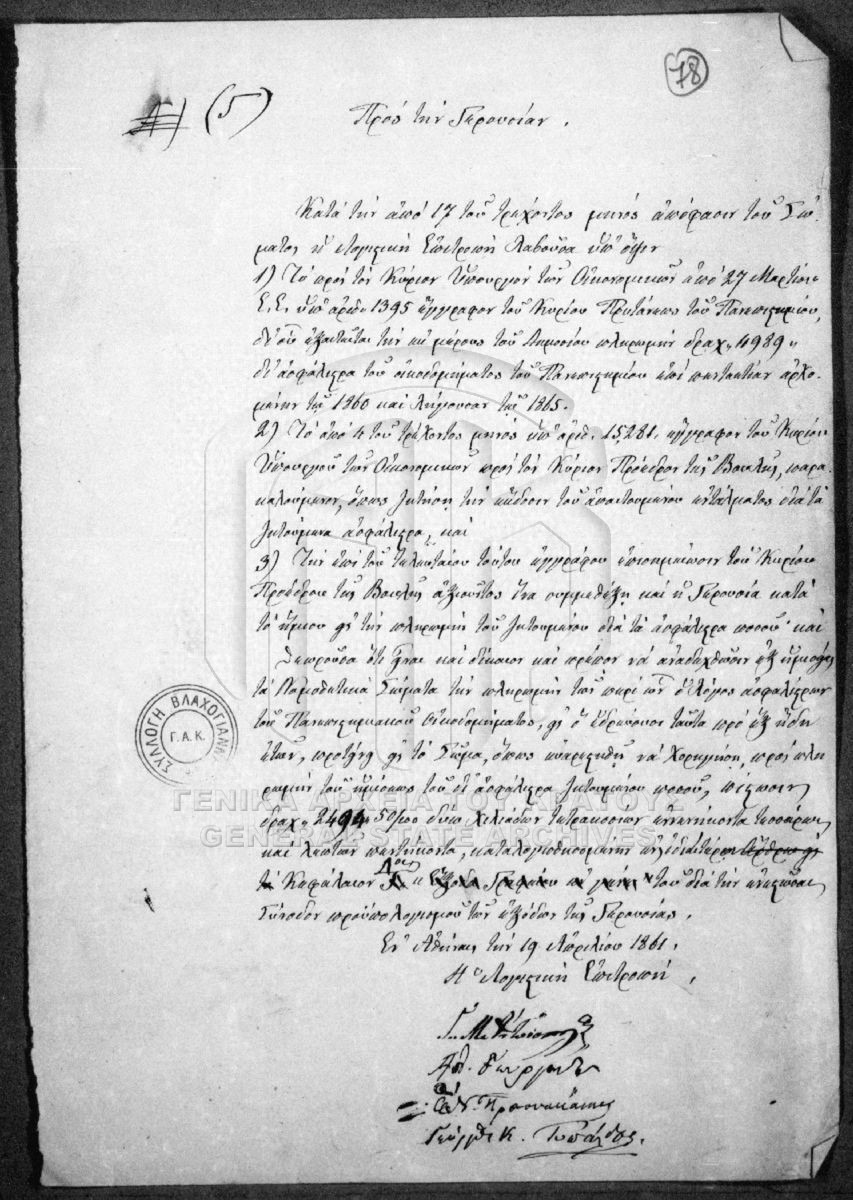 78
(5)
Πρὸς τὴν Γερουσίαν.
Κατὰ τὴν ἀπὸ 17 τοῦ τρέχοντος μηνὸς ἀπόφασιν τοῦ Σώ-
ματος ἡ Λογιστικὴ Ἐπιτροπὴ λαβοῦσα ὑπ' ὄψιν
1) Τὸ πρὸς τὸν Κύριον Ὑπουργὸν τῶν Οἰκονομικῶν ἀπὸ 27 Μαρτίου
Ε.Ε. ὑπ' ἀριθ. 1395 ἔγγραφον τοῦ Κυρίου Πρυτάνεως τοῦ Πανεπιστημίου,
δι' οὗ ἐξαιτεῖται τὴν ἐκ μέρους τοῦ Δημοσίου πληρωμὴν δραχ. 4989
δι' ἀσφάλιστρα τοῦ οἰκοδομήματος τοῦ Πανεπιστημίου ἐπὶ πενταετίαν ἀρχο-
μένην τῷ 1860 καὶ λήγουσαν τῷ 1865.
2) Τὸ ἀπὸ 4 τοῦ τρέχοντος μηνὸς ὑπ' ἀριθ. 15,281. ἔγγραφον τοῦ Κυρίου
Ὑπουργοῦ τῶν Οἰκονομικῶν πρὸς τὸν Κύριον Πρόεδρον τῆς Βουλῆς, παρα-
καλούμενον, ὅπως ζητήσῃ τὴν ἔκδοσιν τοῦ ἀπαιτουμένου ἐντάλματος διὰ τὰ
ζητούμενα ἀσφάλιστρα, καὶ
3) Τὴν ἐπὶ τοῦ τελευταίου τούτου ἐγγράφου ἐπισημείωσιν τοῦ Κυρίου
Προέδρου τῆς Βουλῆς ἀξιοῦντος ἵνα συμμεθέξῃ καὶ ἡ Γερουσία κατὰ
τὸ ἥμισυ εἰς τὴν πληρωμὴν τοῦ ζητουμένου διὰ τὰ ἀσφάλιστρα ποσοῦ· καὶ
Σκεφθεῖσα ὅτι εἶναι καὶ δίκαιον καὶ πρέπον νὰ ἀναδεχθῶσιν ἐξ ἡμισείας
τὰ Νομοθετικὰ Σώματα τὴν πληρωμὴν τῶν περὶ ὧν ὁ λόγος ἀσφαλίστρων
τοῦ Πανεπιστημιακοῦ Οἰκοδομήματος, εἰς ὃ ἑδρεύουσι ταῦτα πρὸ ἓξ ἤδη
ἐτῶν, προτείνει εἰς τὸ Σῶμα, ὅπως εὐαρεστηθῇ νὰ χορηγήσῃ πρὸς πλη-
ρωμὴν τοῦ ἡμίσεως τοῦ δι' ἀσφάλιστρα ζητουμένου ποσοῦ, πίστωσιν
δραχ. 2494 50/100 δύω χιλιάδων τετρακοσίων ἐννενήκοντα τεσσάρων
καὶ λεπτῶν πεντήκοντα, καταλογισθησομένην
Κεφάλαιον Δον Ἔξοδα Γραφείου τοῦ διὰ τὴν ἐνεστῶσαν
Σύνοδον προϋπολογισμοῦ τῶν ἐξόδων τῆς Γερουσίας.
Ἐν Ἀθήναις τὴν 19 Ἀπριλίου 1861.
Ἡ Λογιστικὴ Ἐπιτροπή,
Γεώργιος Κ. Τυπάλδος.
ΣΥΛΛΟΓΗ ΒΛΑΧΟΓΙΑΝΝΗ
Γ.Α.Κ.
ΓΕΝΙΚΑ ΑΡΧΕΙΑ ΤΟΥ ΚΡΑΤΟΥΣ
GENERAL STATE ARCHIVES